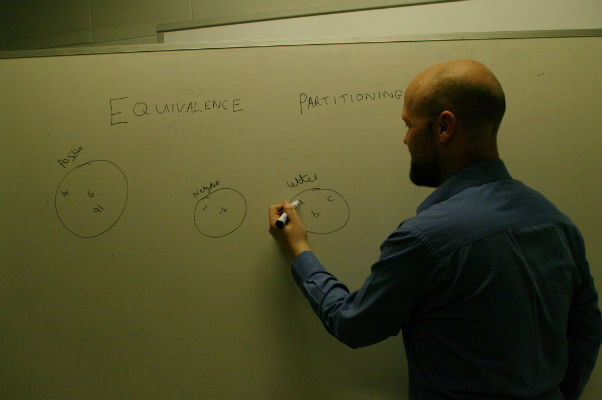 EQUIVALENCE PARTITIONING
Positive
6
91
Negative
Letter
b
c